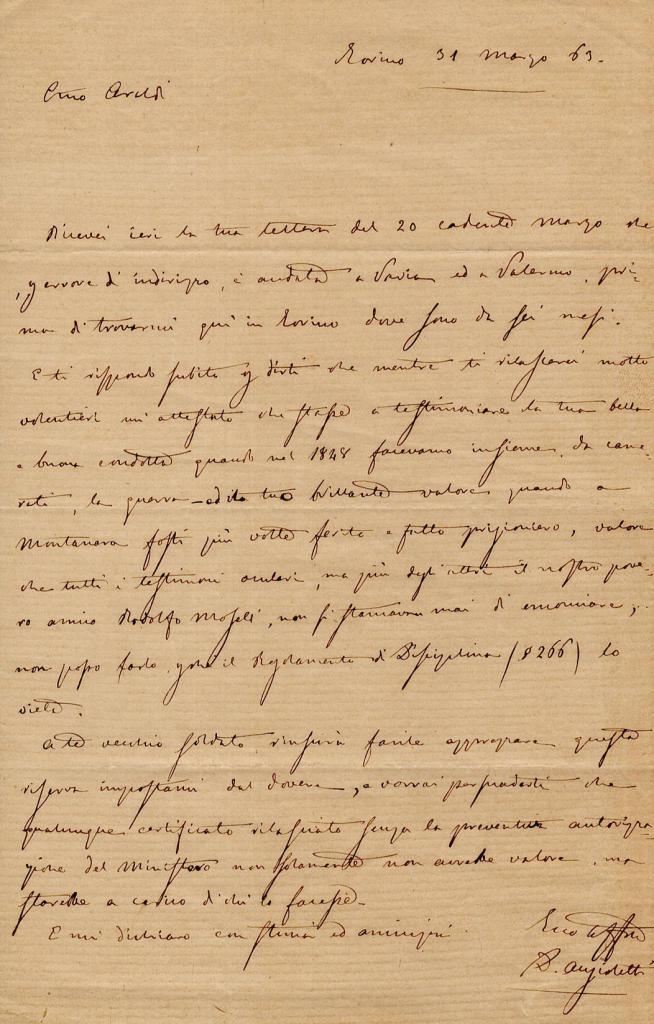 Torino 31 Marzo 63.
Cmo Araldi
Ricevei ieri la tua lettera del 20 cadente marzo che
, p errore d'indirizzo, è andata a Pavia ed a Palermo, pri-
ma di trovarmi quì in Torino dove sono da sei mesi.
E ti rispondo subito p dirti che mentre ti rilascerei molto
volentieri un attestato che stasse a testimoniare la tua bella
e buona condotta quando nel 1848 facevamo insieme, da came-
rati, la guerra - ed il tuo brillante valore quando a
Montanara fosti più volte ferito e fatto prigioniero, valore
che tutti i testimoni oculari, ma più degli altri il nostro pove-
ro amico Rodolfo, non si stancavan mai di encomiare,
non posso farlo, pchè il Regolamento di Disciplina (§ 266) lo
vieta.
A te vecchio soldato riuscirà facile apprezzare questa
riserva impostami dal dovere, e vorrai persuaderti che
qualunque certificato rilasciato senza la preventiva autorizza-
zione del Ministero non solamente non avrebbe valore, ma
starebbe a carico di chi lo facesse.
E mi dichiaro con stima ed amicizia.
Tuo affmo